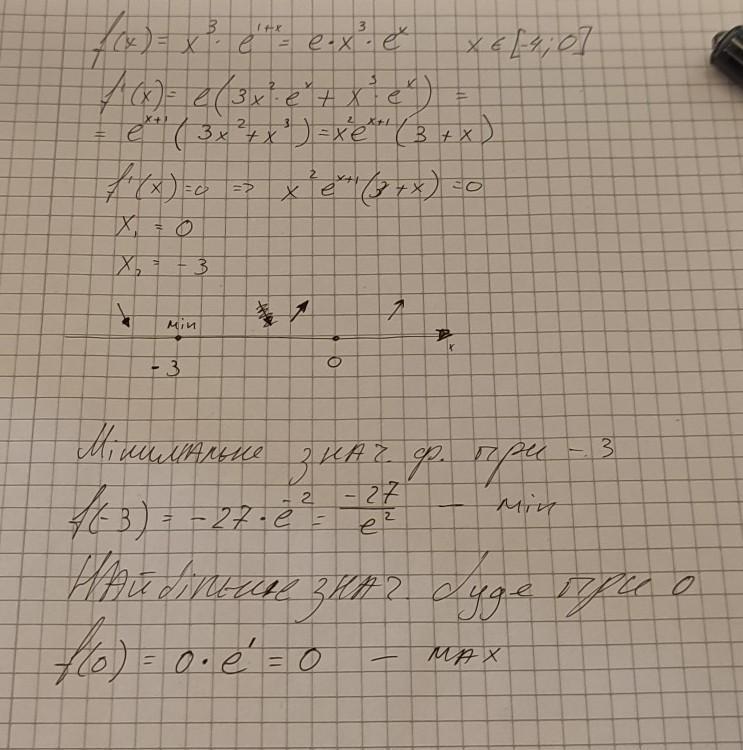 f(x) = x³ · e¹⁺ˣ = e · x³ · eˣ x ∈ [-4; 0]
f'(x) = e(3x² · eˣ + x³ · eˣ) =
= eˣ⁺¹(3x² + x³) = x²eˣ⁺¹(3 + x)
f'(x) = 0 => x²eˣ⁺¹(3 + x) = 0
x₁ = 0
x₂ = -3
min
-3 0 x
Мінімальне знач. ф. при -3
f(-3) = -27 · e⁻² = -27/e² — min
Найбільше знач. буде при 0
f(0) = 0 · e¹ = 0 — max